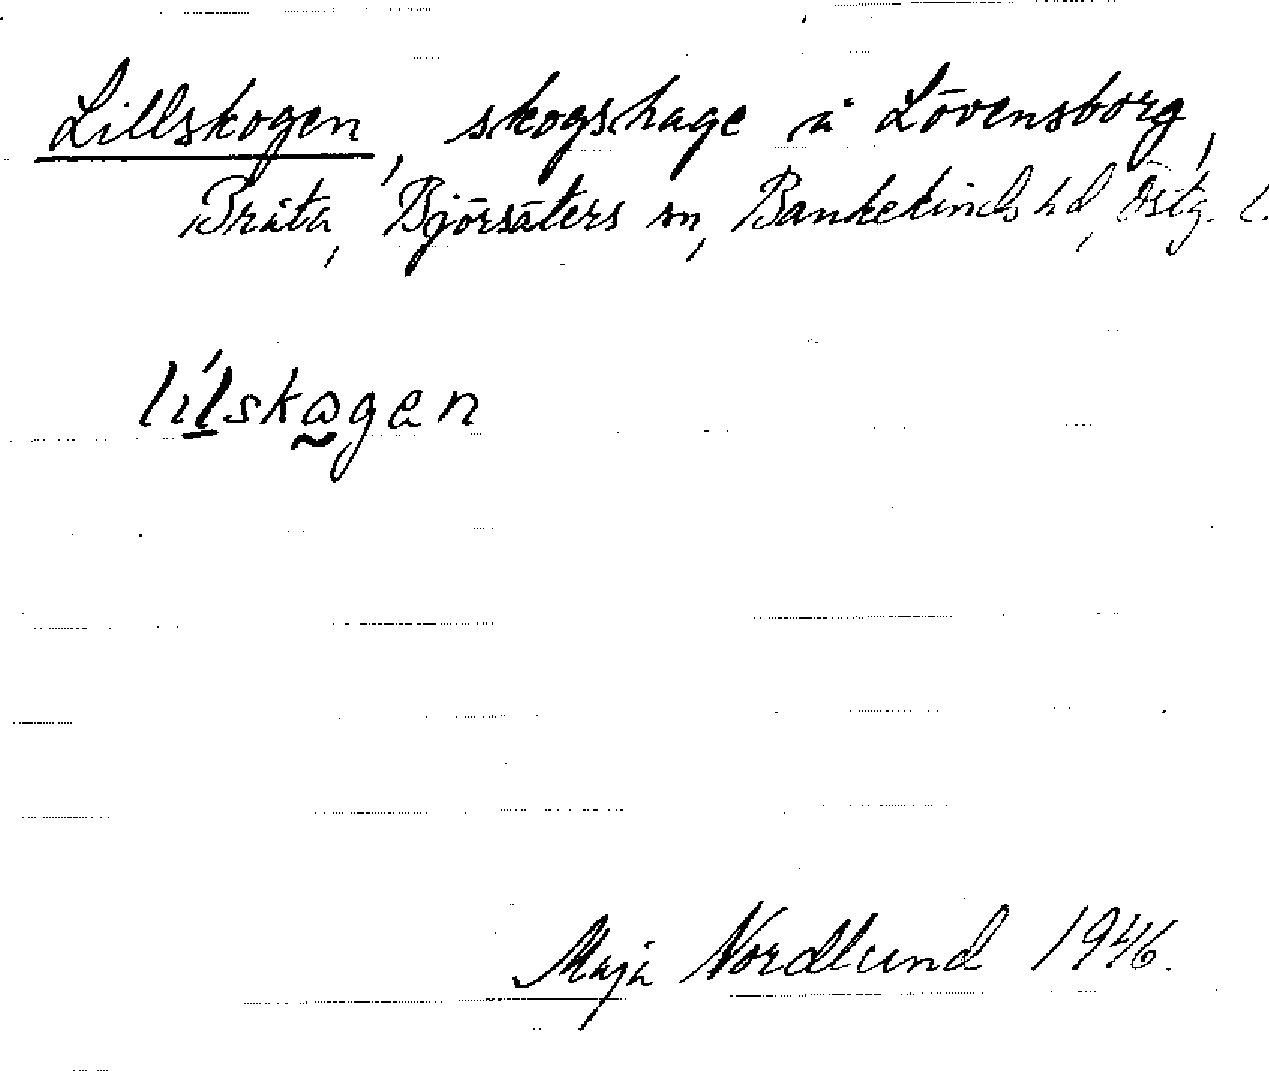 Lillskogen, skogshage å Lövensborg,
Bråta, Björsäters sn, Bankekinds hd, Östg. l.
lílskωgen
Maja Nordlund 1946.